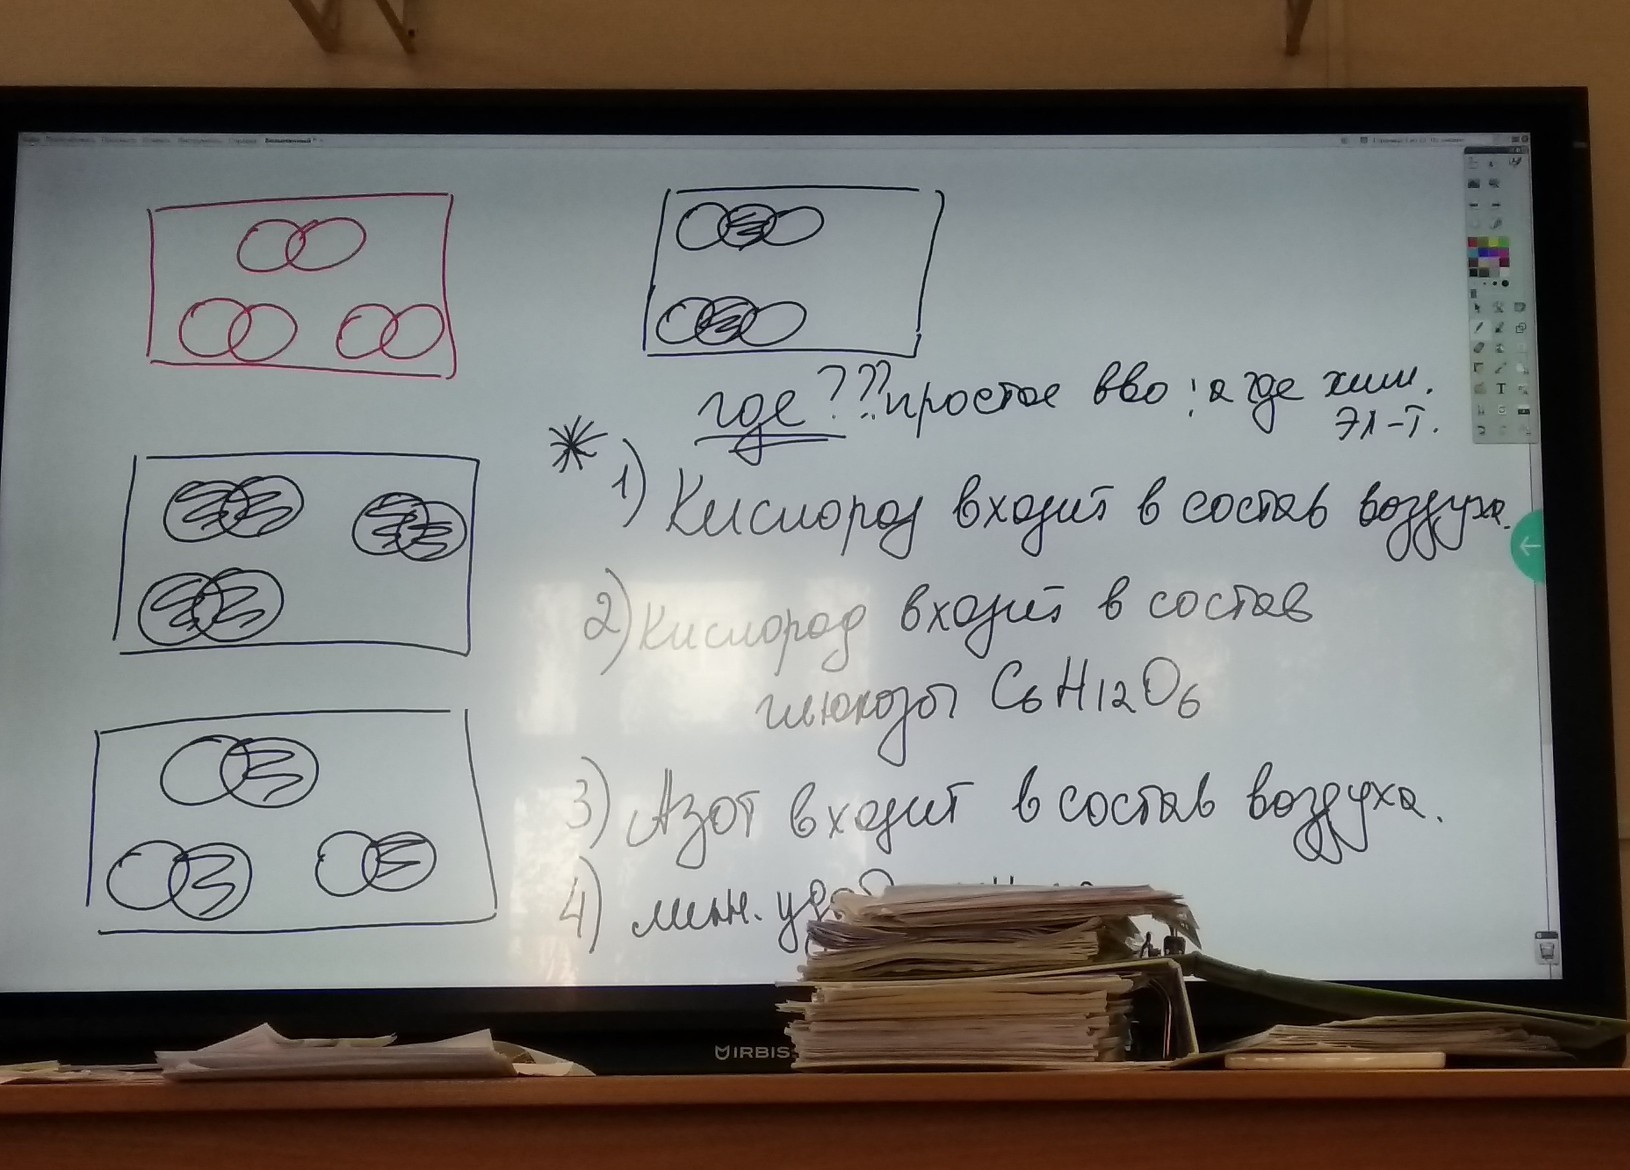 где ??? простое вво : а где хим.
эл-т.
1) Кислород входит в состав воздуха.
2) Кислород входит в состав
глюкозы C6H12O6
3) Азот входит в состав воздуха.
4) мин.
IRBIS